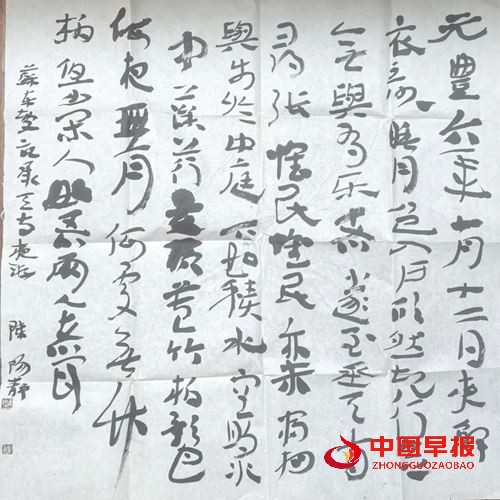 元豐六年十月十二日夜解
衣欲睡月色入戶欣然起行念
無與為樂者遂至承天寺
尋張懷民懷民亦未寢相
與步於中庭下如積水空明水
中藻荇交橫蓋竹柏影也
何夜無月何處無竹
柏但少閑人如吾兩人者耳
蘇東坡記承天寺夜游
陽静
中國早报
ZHONGGUOZAOBAO